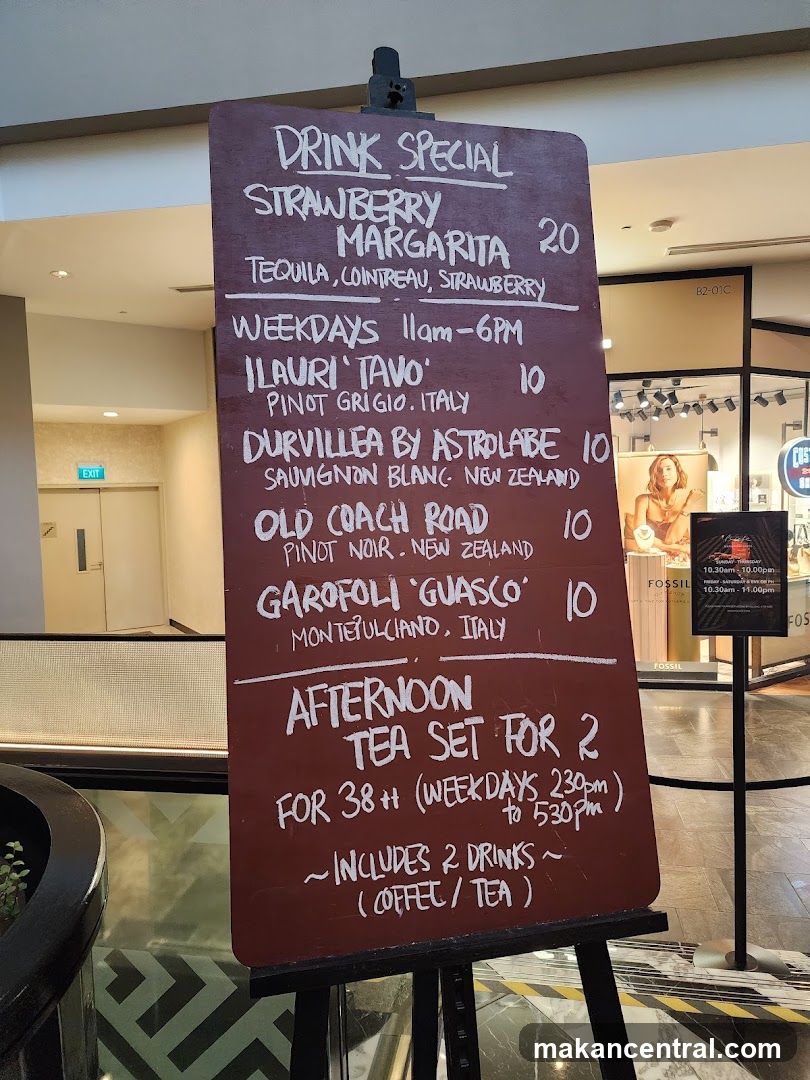 DRINK SPECIAL
STRAWBERRY
MARGARITA 20
TEQUILA, COINTREAU, STRAWBERRY
WEEKDAYS 11am-6PM
ILAURI 'TAVO' 10
PINOT GRIGIO. ITALY
DURVILLEA BY ASTROLABE 10
SAUVIGNON BLANC. NEW ZEALAND
OLD COACH ROAD 10
PINOT NOIR. NEW ZEALAND
GAROFOLI 'GUASCO' 10
MONTEPULCIANO, ITALY
AFTERNOON
TEA SET FOR 2
FOR 38++ (WEEKDAYS 230pm
to 530pm)
~INCLUDES 2 DRINKS~
(COFFEE / TEA)
B2-01C
EXIT
FOSSIL
FOSSIL
SUNDAY - THURSDAY
10.30am - 10.00pm
FRIDAY - SATURDAY & EVE OF PH
10.30am - 11.00pm
makancentral.com